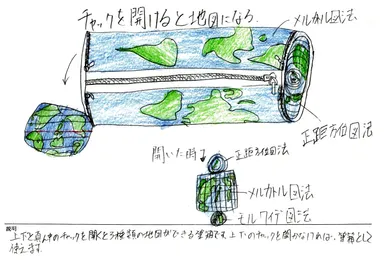 チャックを開けると地図になる.
メルカトル図法
正距方位図法
開いた時↓
正距方位図法
メルカトル図法
モルワイデ図法
説明
上下と真ん中のチャックを開くと3種類の地図ができる筆箱です。上下のチャックを開かなければ、筆箱として
使えます。